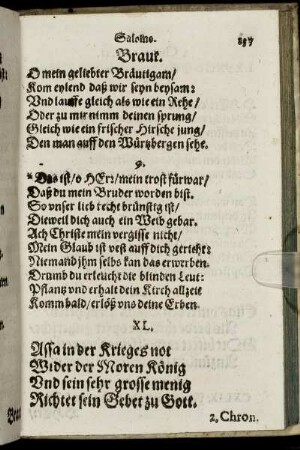 Salomo. 157
Braut.
O mein geliebter Bräutigam/
Kom eylend daß wir seyn beysam:
Vnd lauffe gleich als wie ein Rehe/
Oder zu mir nimm deinen sprung/
Gleich wie ein frischer Hirsche jung/
Den man auff den Würtzbergen sehe.
9.
Das ist/ o HErr mein trost fürwar/
Daß du mein Bruder worden bist.
So vnser lieb recht brünstig ist/
Dieweil dich auch ein Weib gebar.
Ach Christe mein vergisse nicht/
Mein Glaub ist vest auff dich gericht:
Niemand jhm selbs kan das erwerben.
Drumb du erleucht die blinden Leut:
Pflantz vnd erhalt dein Kirch allzeit
Komm bald/ erlöß vns deine Erben
XL.
Assa in der Krieges not
Wider der Moren König
Vnd sein sehr grosse menig
Richtet sein Gebet zu Gott.
2. Chron.